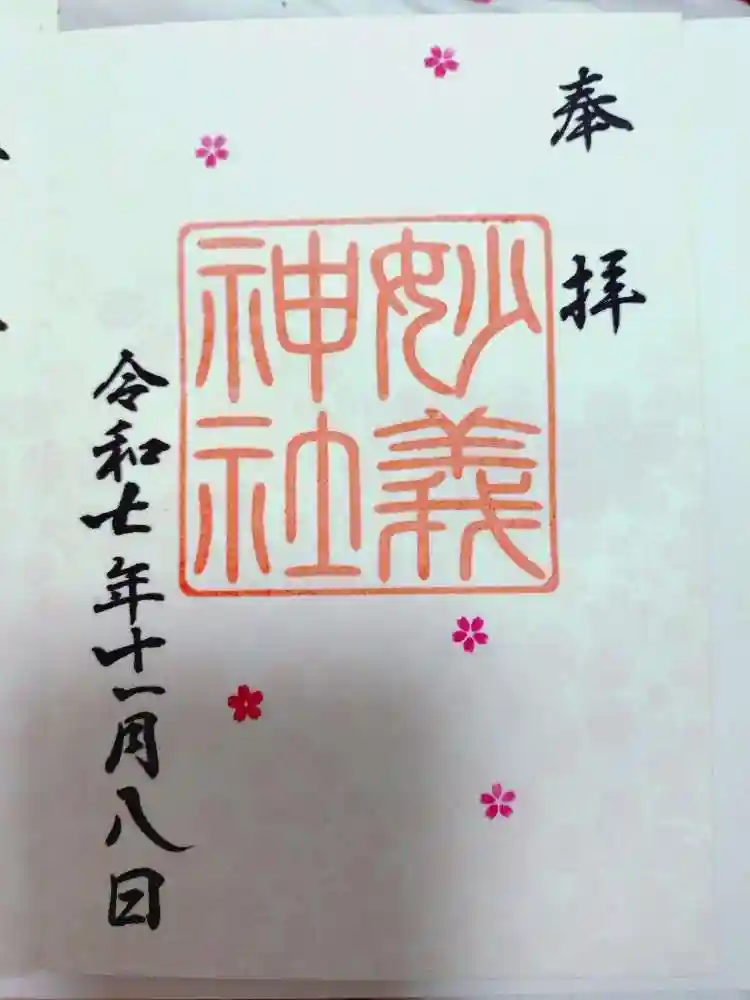 奉拝
妙義
神社
令和七年十一月八日